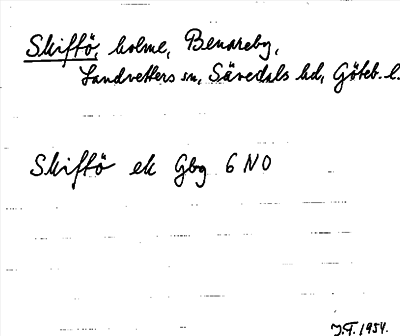 Skiftö, holme, Benareby,
Landvetters sn, Sävedals hd, Göteb. l.
Skiftö ek Gbg 6 NO
J.F. 1954.